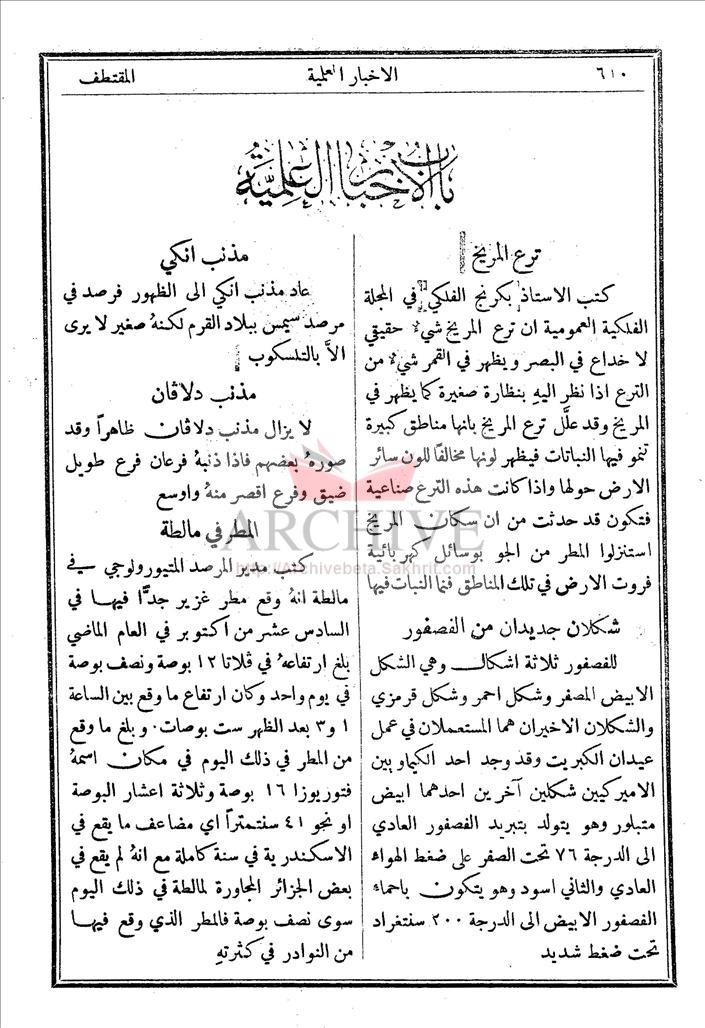 ٦١٠
الاخبار العلمية
المقتطف
باب الاخبار العلمية
ترع المريخ
كتب الاستاذ بكرنج الفلكي في المجلة
الفلكية العمومية ان ترع المريخ شيءٌ حقيقي
لا خداع في البصر ويظهر في القمر شيءٌ من
الترع اذا نظر اليهِ بنظارة صغيرة كما يظهر في
المريخ وقد علَّل ترع المريخ بانها مناطق كبيرة
تنمو فيها النباتات فيظهر لونها مخالفًا للون سائر
الارض حولها واذا كانت هذه الترع صناعية
فتكون قد حدثت من ان سكان المريخ
استنزلوا المطر من الجو بوسائل كهربائية
فروت الارض في تلك المناطق فنما النبات فيها
شكلان جديدان من الفصفور
للفصفور ثلاثة اشكال وهي الشكل
الابيض المصفر وشكل احمر وشكل قرمزي
والشكلان الاخيران هما المستعملان في عمل
عيدان الكبريت وقد وجد احد الكيماويين
الاميركيين شكلين آخرين احدهما ابيض
متبلور وهو يتولد بتبريد الفصفور العادي
الى الدرجة ٧٦ تحت الصفر على ضغط الهواء
العادي والثاني اسود وهو يتكون باحماء
الفصفور الابيض الى الدرجة ٢٠٠ سنتغراد
تحت ضغط شديد
مذنب انكي
عاد مذنب انكي الى الظهور فرصد في
مرصد سيمس ببلاد القرم لكنهُ صغير لا يرى
الاَّ بالتلسكوب
مذنب دلاڤان
لا يزال مذنب دلاڤان ظاهراً وقد
صورهُ بعضهم فاذا ذنبهُ فرعان فرع طويل
ضيق وفرع اقصر منهُ واوسع
المطر في مالطة
كتب مدير المرصد المتيورولوجي في
مالطة انهُ وقع مطر غزير جدًّا فيها في
السادس عشر من اكتوبر في العام الماضي
بلغ ارتفاعهُ في ڤلاتا ١٢ بوصة ونصف بوصة
في يوم واحد وكان ارتفاع ما وقع بين الساعة
١ و٣ بعد الظهر ست بوصات. وبلغ ما وقع
من المطر في ذلك اليوم في مكان اسمهُ
فتوريوزا ١٦ بوصة وثلاثة اعشار البوصة
او نحو ٤١ سنتمتراً اي مضاعف ما يقع في
الاسكندرية في سنة كاملة مع انهُ لم يقع في
بعض الجزائر المجاورة لمالطة في ذلك اليوم
سوى نصف بوصة فالمطر الذي وقع فيها
من النوادر في كثرتهِ
ARCHIVE
http://Archivebeta.Sakhrit.com